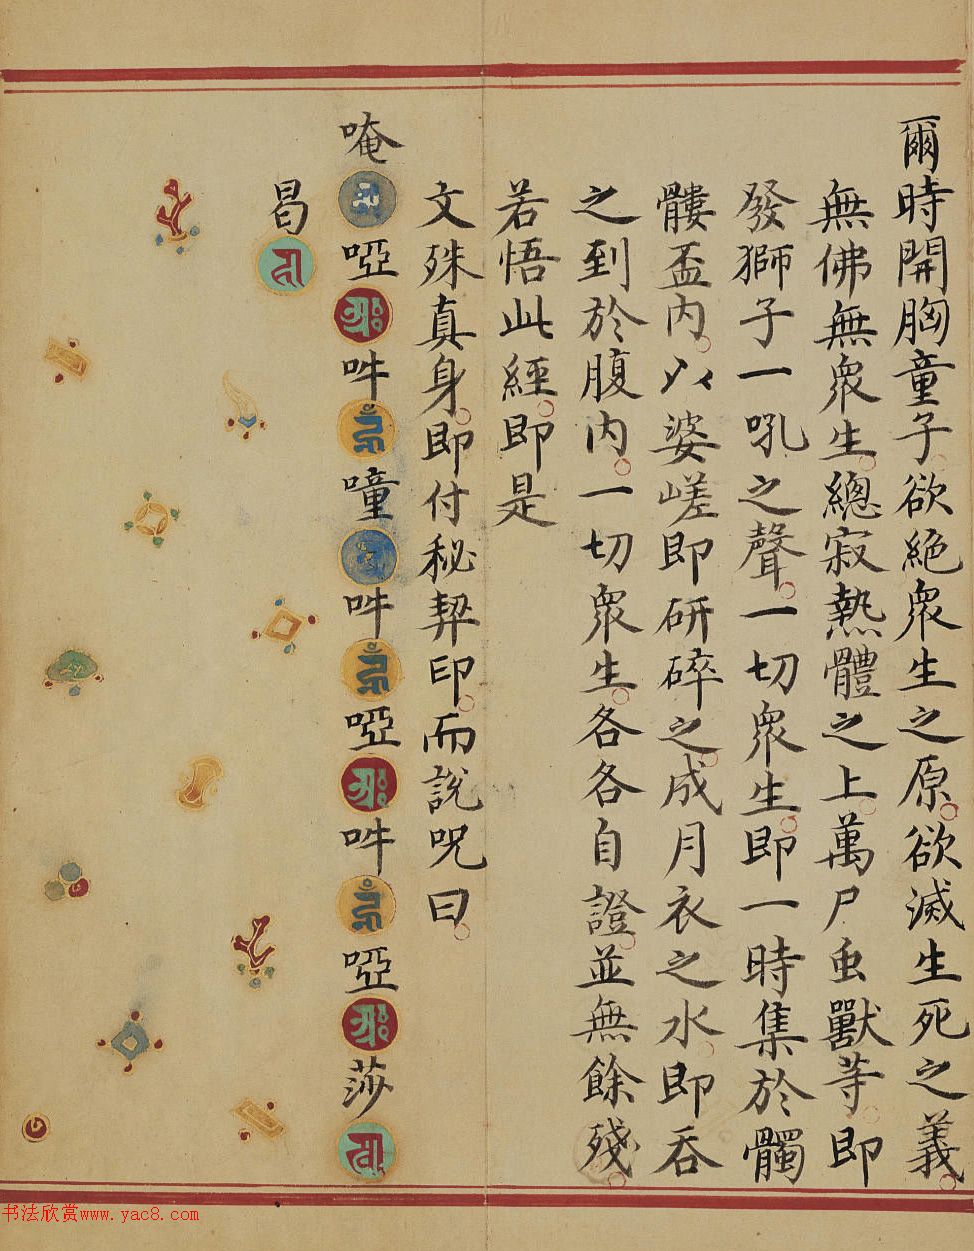 爾時開胸童子。欲絕眾生之原。欲滅生死之義。
無佛無眾生。總寂熱體之上。萬尸虫獸等。即
發獅子一吼之聲。一切眾生。即一時集於髑
髏盃內。以婆嵯即研碎之。成月衣之水。即吞
之到於腹內。一切眾生。各各自證。並無餘殘。
若悟此經。即是
文殊真身。即付秘契印。而說呪曰。
唵啞吽㗢吽啞吽啞莎
曷
书法欣赏www.yac8.com